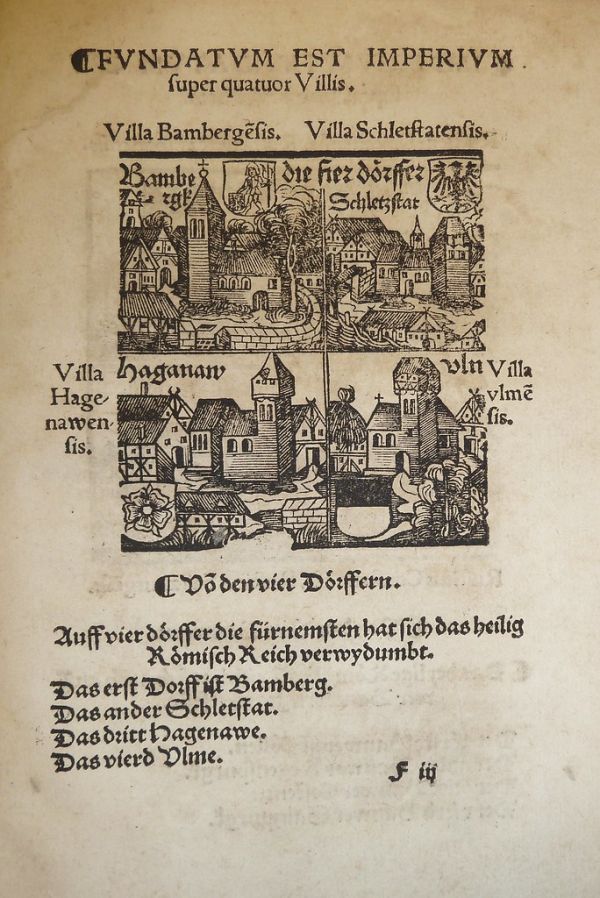 ¶FVNDATVM EST IMPERIVM
super quatuor Villis.
Villa Bambergēsis. Villa Schletstatensis.
Bambe
rgk
die fier dörffer
Schletzstat
Villa
Hage-
nawen-
sis.
haganaw
vln
Villa
vlmē
sis.
¶ Vō den vier Dörffern.
Auff vier dörffer die fürnemsten hat sich das heilig
Römisch Reich verwydumbt.
Das erst Dorff ist Bamberg.
Das ander Schletstat.
Das dritt Hagenawe.
Das vierd Vlme.
F iij